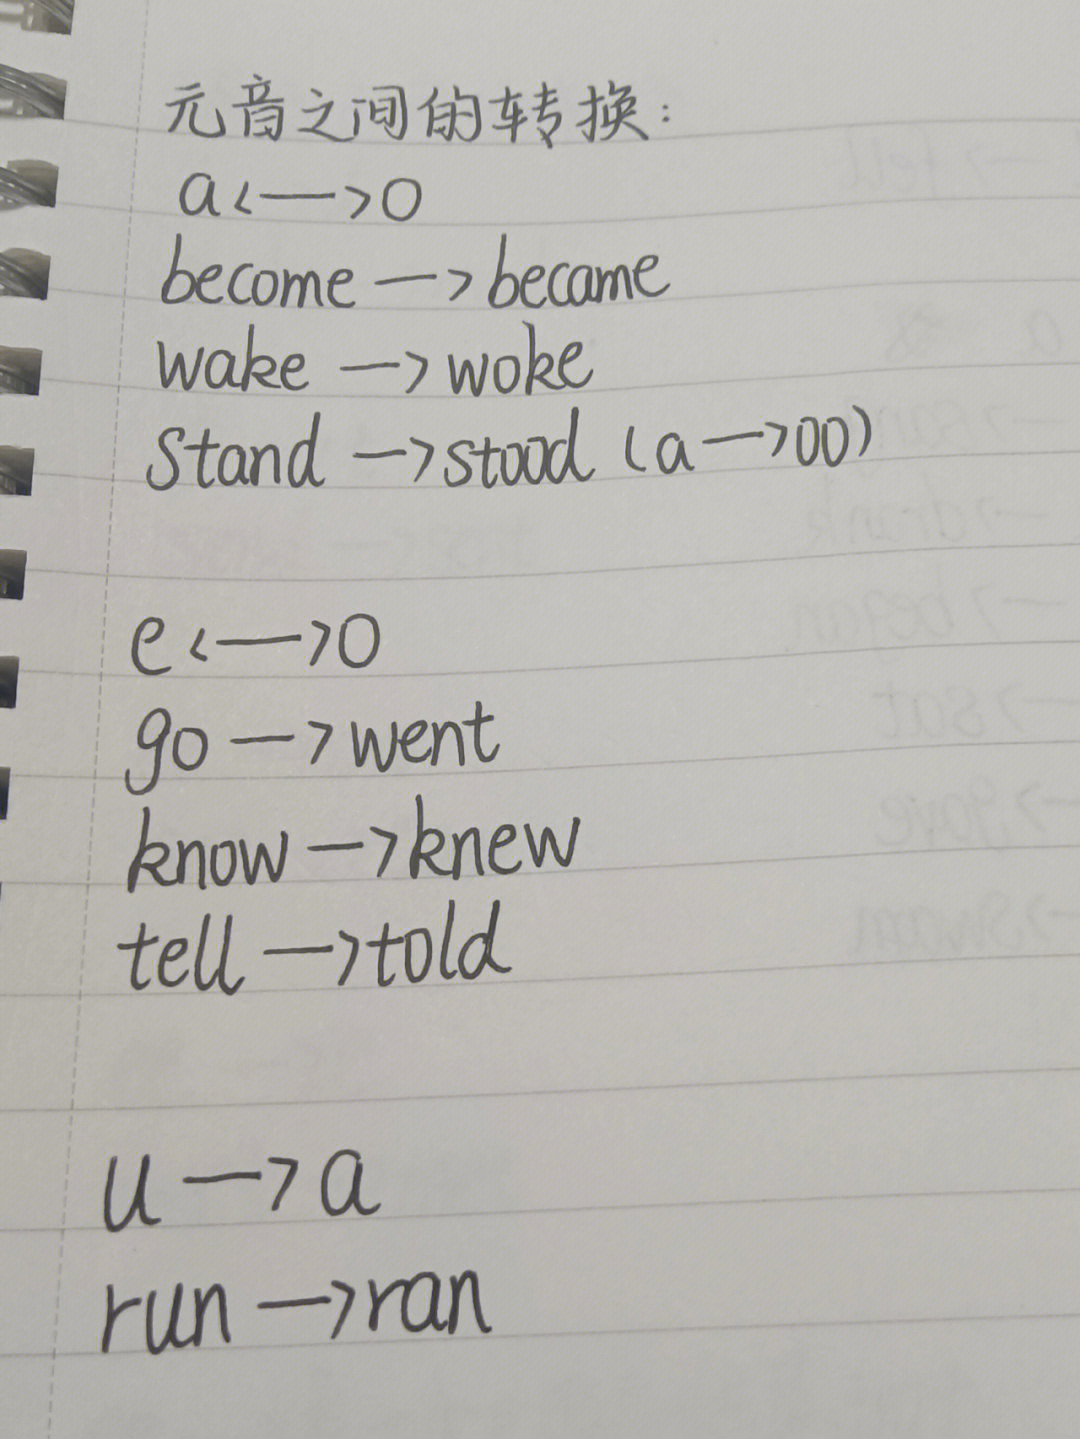 元音之间的转换:
a<—>o
become —> became
wake —> woke
Stand —> stood (a —> oo)
e<—>o
go —> went
know —> knew
tell —> told
u —> a
run —> ran